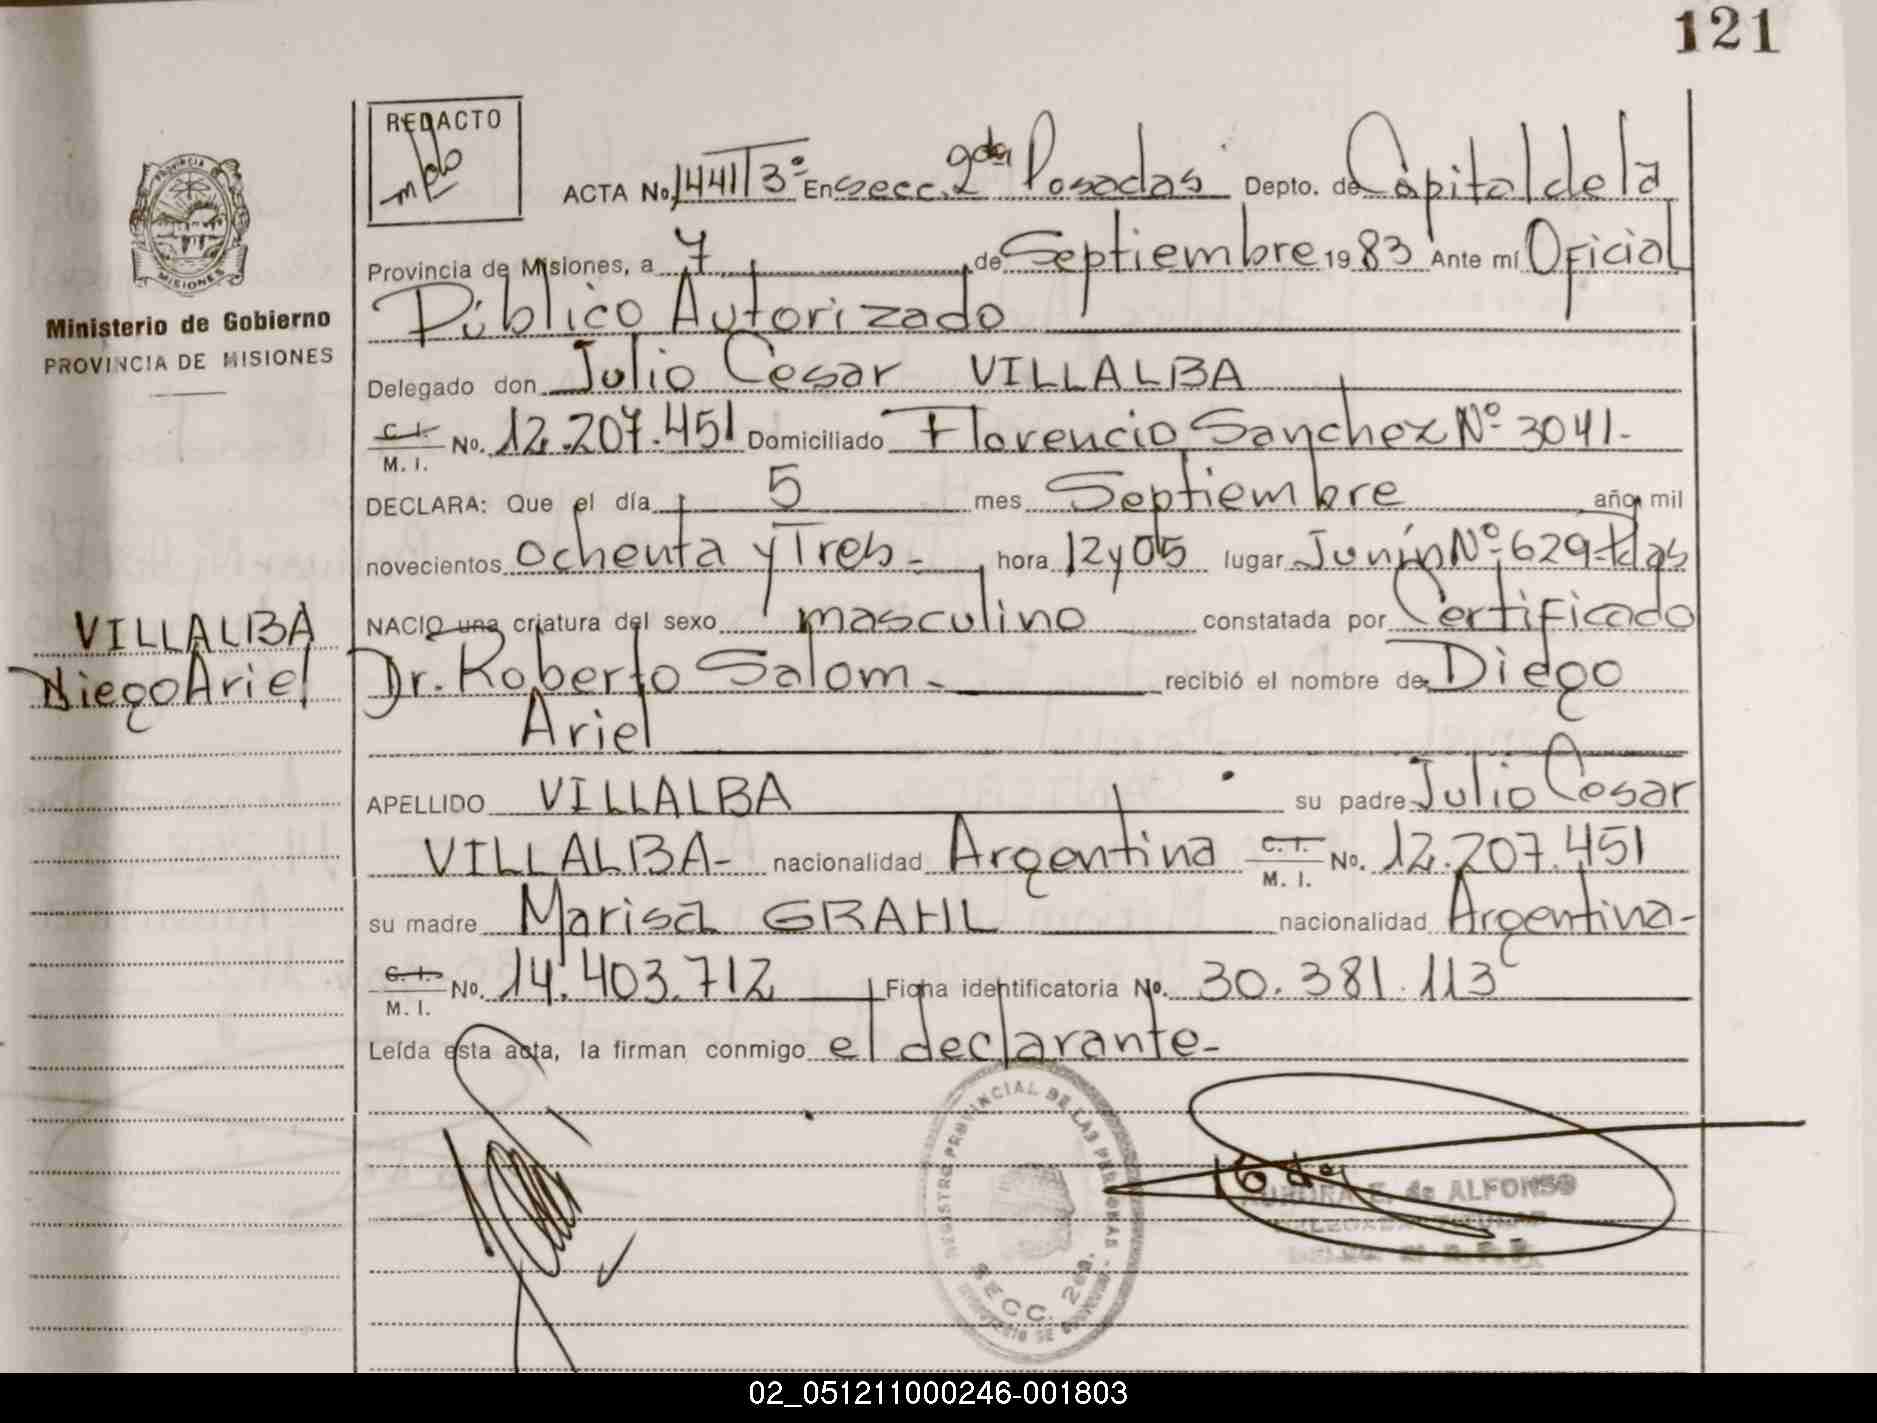 121
REDACTO
PROVINCIA
MISIONES
Ministerio de Gobierno
PROVINCIA DE MISIONES
ACTA No. 1441 T 3º En secc. 2da Posadas Depto. de Capital de la
Provincia de Misiones, a 7 de Septiembre 1983 Ante mí Oficial
Público Autorizado
Delegado don Julio Cesar VILLALBA
C. I. M. I. No. 12.207.451 Domiciliado Florencio Sanchez Nº 3041-
DECLARA: Que el día 5 mes Septiembre año mil
novecientos ochenta y Tres- hora 12 y 05 lugar Junín Nº 629- Pdas
NACIO una criatura del sexo masculino constatada por Certificado
Dr. Roberto Salom- recibió el nombre de Diego
Ariel
VILLALBA
Diego Ariel
APELLIDO VILLALBA su padre Julio Cesar
VILLALBA- nacionalidad Argentina C. I. M. I. No. 12.207.451
su madre Marisa GRAHL nacionalidad Argentina-
C. I. M. I. No. 14.403.712 Ficha identificatoria No. 30.381.113
Leída esta acta, la firman conmigo el declarante-
REGISTRO PROVINCIAL DE LAS PERSONAS
SECC. 2da.
AURORA E. de ALFONSO
02_051211000246-001803